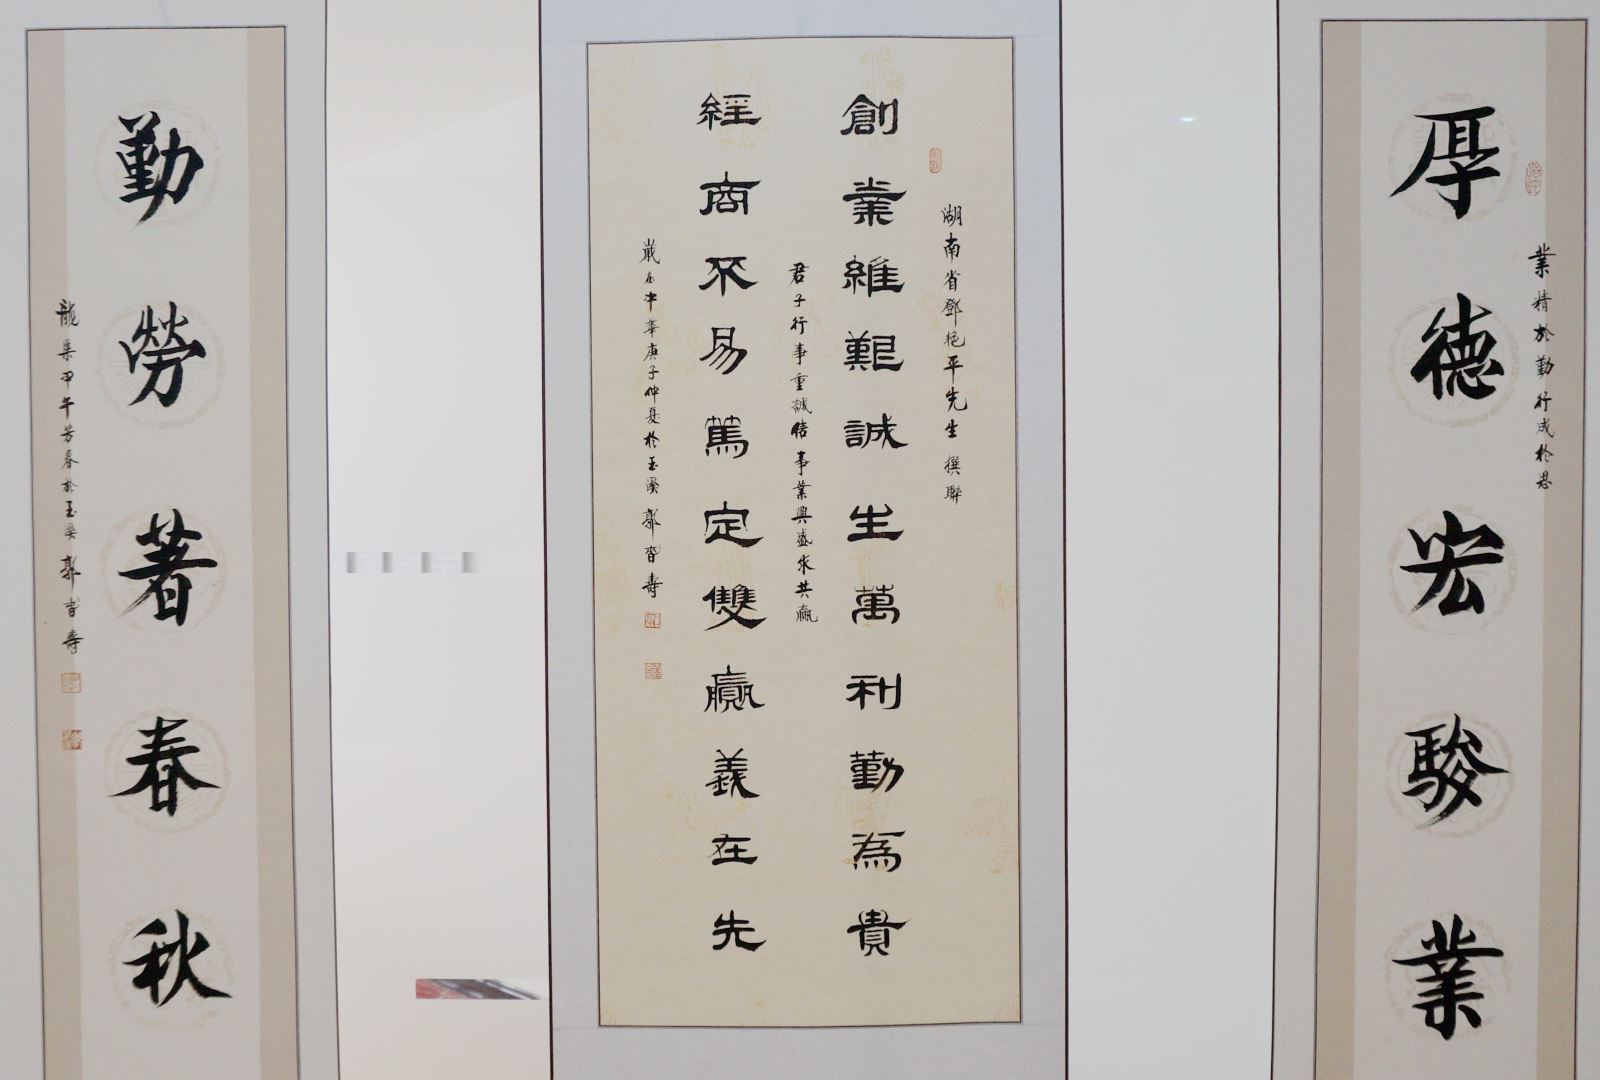 業精於勤行成於思
厚德宏駿業
湖南省鄧艳平先生撰聯
創業維艱誠生萬利勤為貴
君子行事重誠悟事業興盛求共贏
經商不易篤定雙贏義在先
嵗在中華庚子仲夏於玉溪郭智壽
勤勞著春秋
龍集甲午芳春於玉溪郭智壽